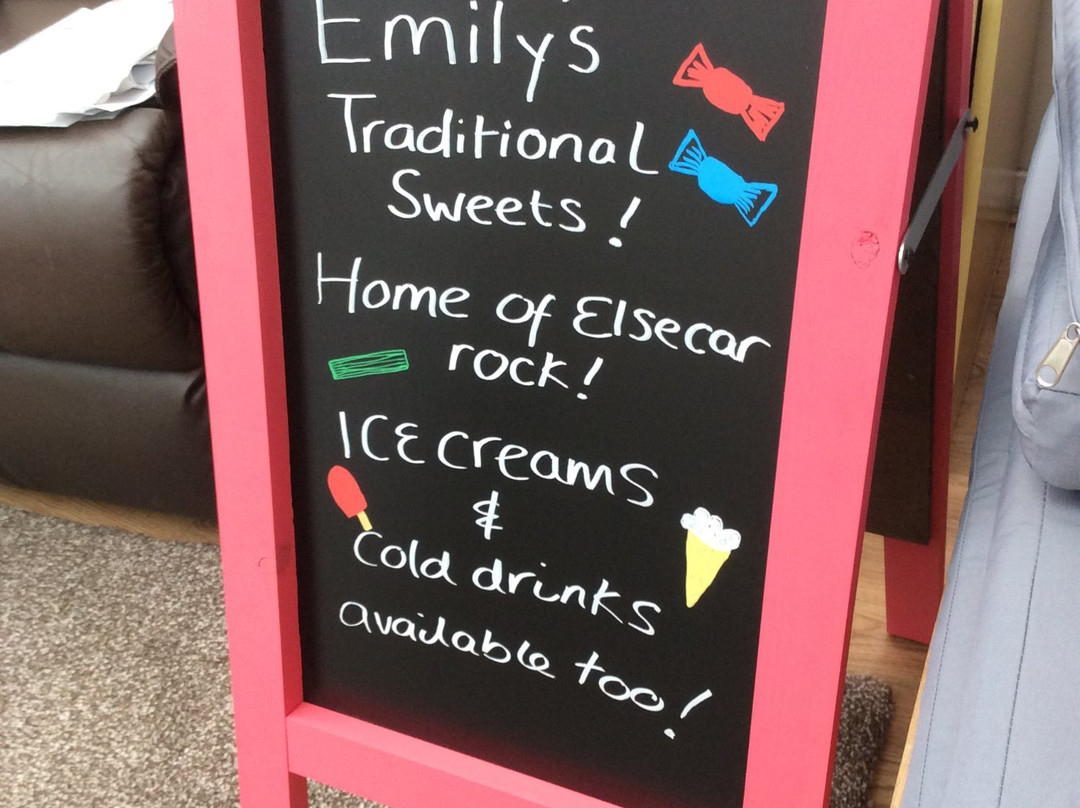 Emilys
Traditional
Sweets!
Home of Elsecar
rock!
ICE creams
&
Cold drinks
available too!